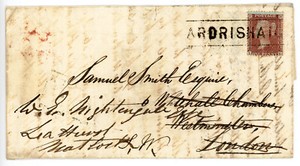 ARDRISHAI
Samuel Smith Esquire,
W. E. Nightingale Whitehall Chambers,
Lea Hurst Westminster,
Matlock London